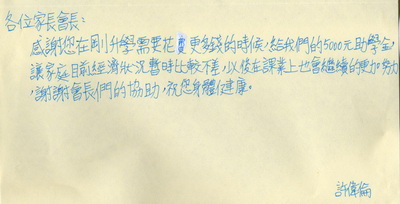 各位家長會長:
感謝您在剛升學需要花費更多錢的時候,給我們的5000元助學金,
讓家庭目前經濟狀況暫時比較不差,以後在課業上也會繼續的更加努力
,謝謝會長們的協助,祝您身體健康。
許偉倫